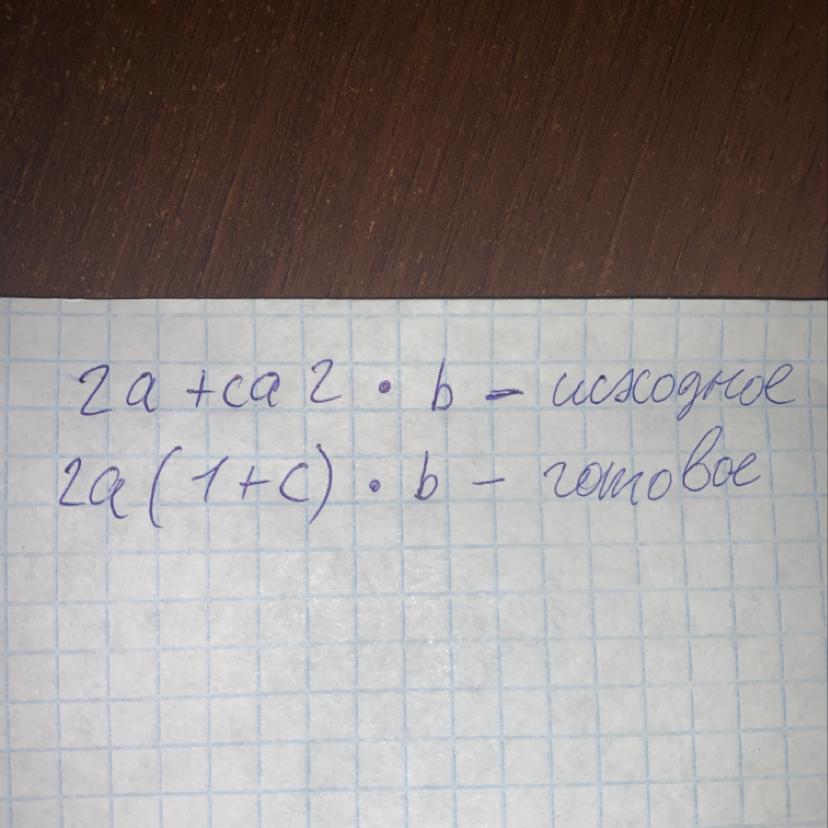 2a + ca 2 · b - исходное
2a (1 + c) · b - готовое